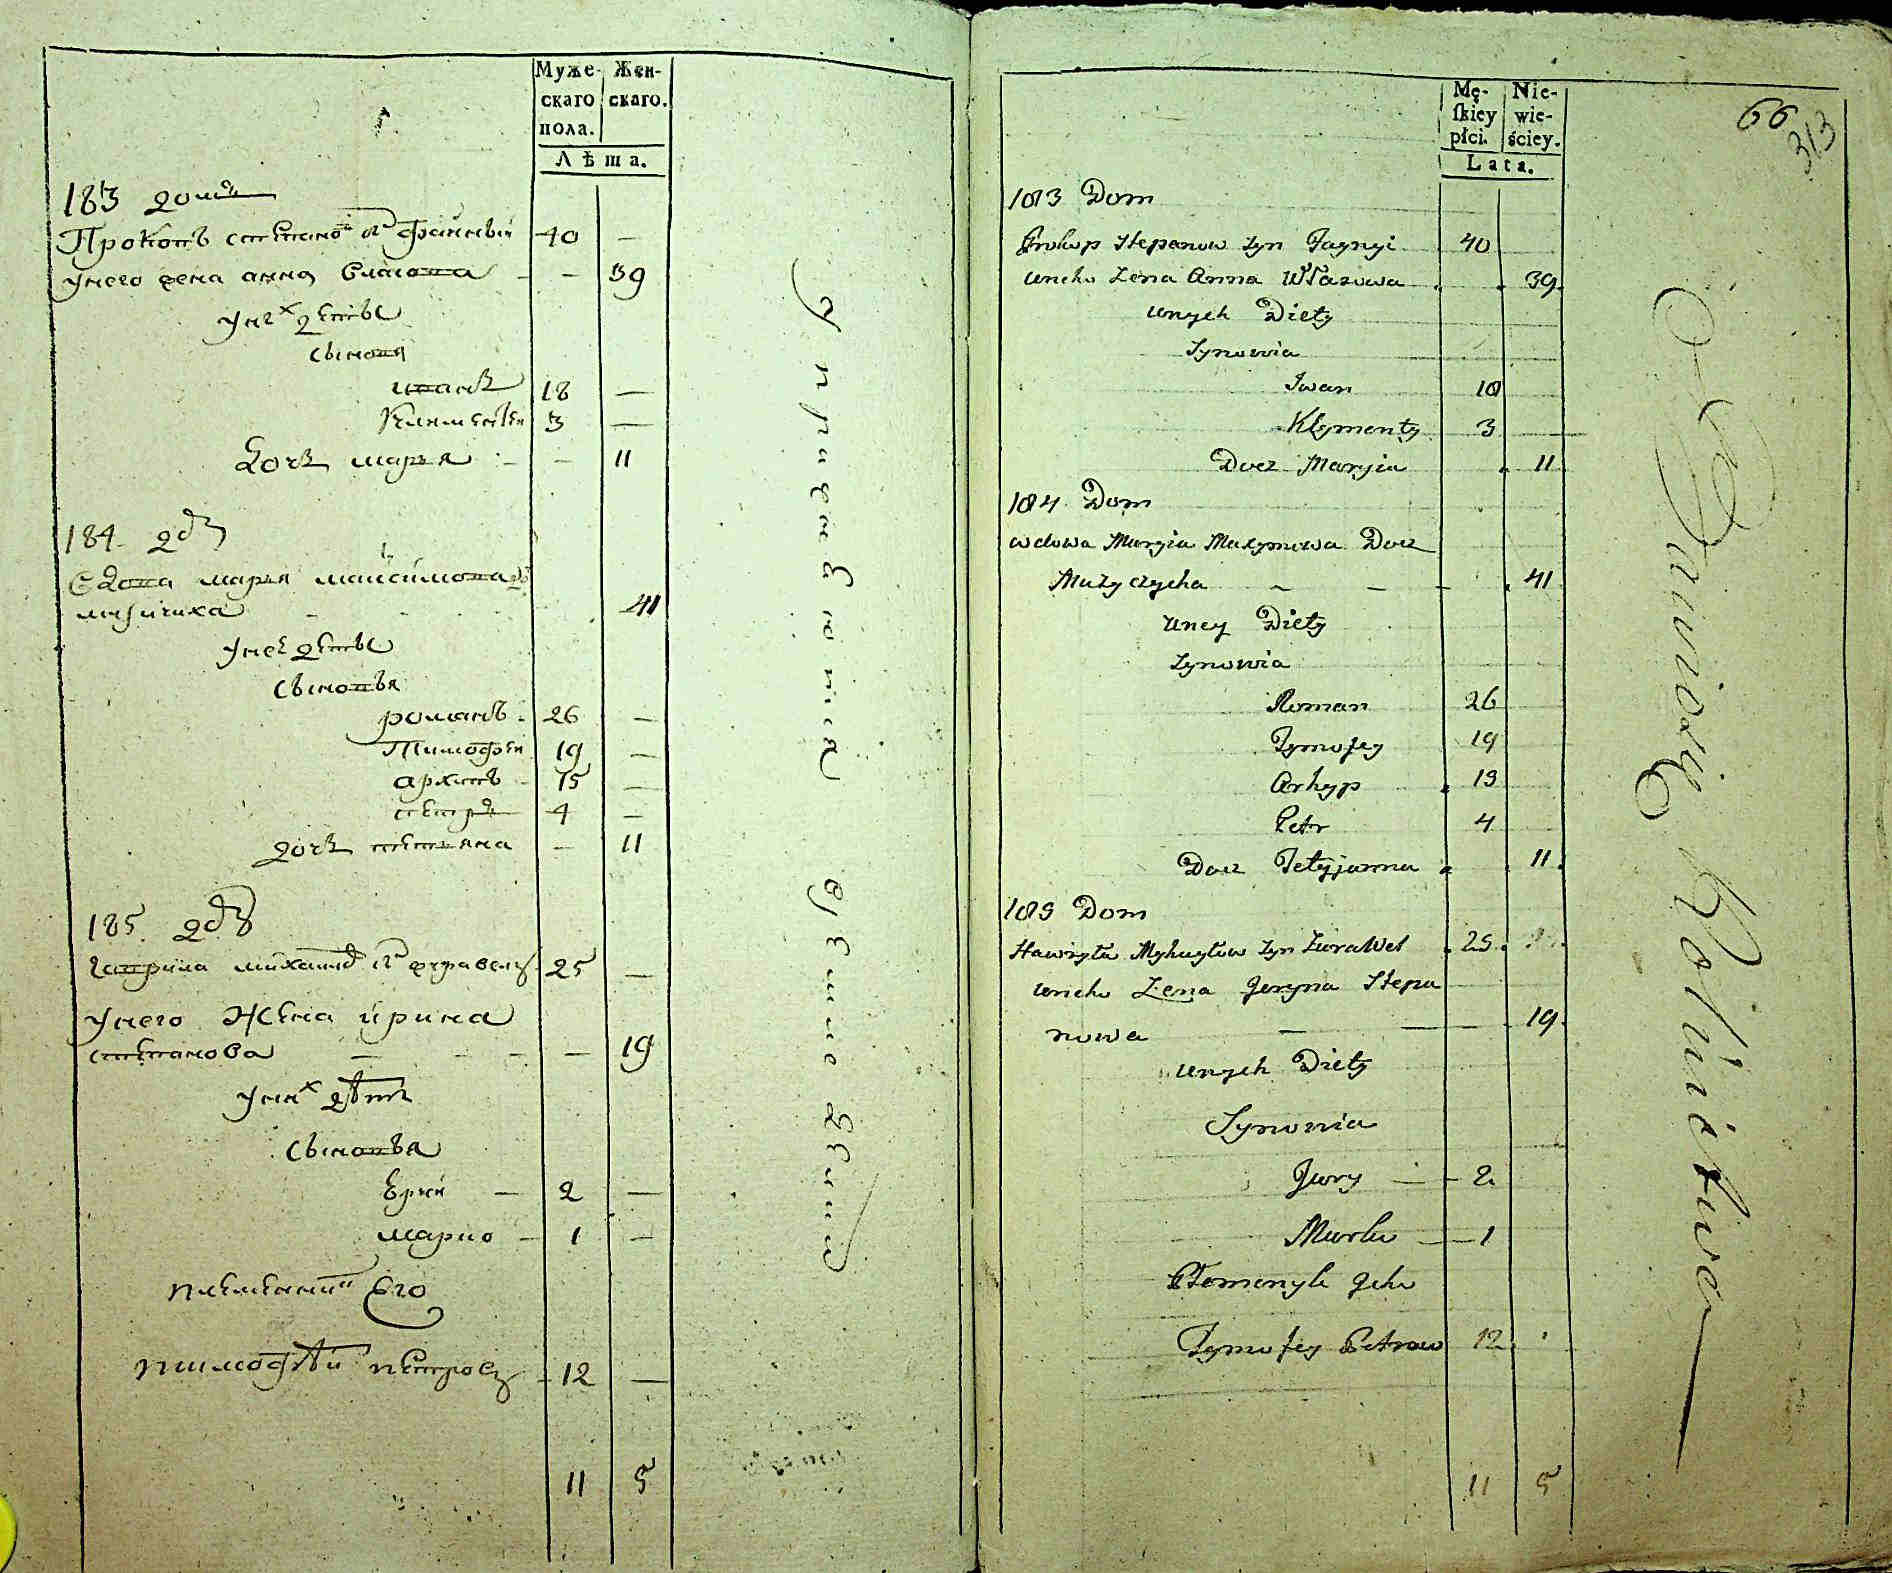 Муже-
скаго
пола.
Жен-
скаго.
Лѣта.
183 домъ
Прокопъ степановъ сⷩ҇ъ файный 40 —
у него жена анна власова — 39
у них дети
сыновя
иванъ 18 —
Климентей 3 —
дочь марья — 11
184 дⷨ
вдова марья максимова
музичиха 41
у неѣ дети
сыновья
романъ 26 —
Тимофей 19 —
архипъ 15 —
петръ 4 —
дочь тетьяна — 11
185 дⷨ
гаврила михайловъ сⷩ҇ъ журавель 25 —
у него жена ирина
степанова — 19
у них дѣти
сыновья
юрий 2 —
марко 1 —
племенникъ его
тимофѣй петровъ 12 —
11 5
упражняются в хлебо
66
313
Mę-
skiey
płci.
Nie-
wie-
ściey.
Lata.
183 Dom
Prokop Stepanow Syn Faynyi 40
uneho Żena Anna Własowa 39
unych Diety
Synowia
Iwan 18
Klymenty 3
Docz Maryia 11
184 Dom
wdowa Maryia Maxymowa Docz
Muzyczycha 41
uney Diety
Synowia
Roman 26
Tymofey 19
Arhyp 15
Petr 4
Docz Tetyjanna 11
185 Dom
Hawryła Myhayłow Syn Żurawel 25
uneho Żena Jeryna Stepa
nowa 19
unych Diety
Synowia
Jury 2
Marko 1
Płemenyk Jeho
Tymofey Petrow 12
11 5
Rolnictwem